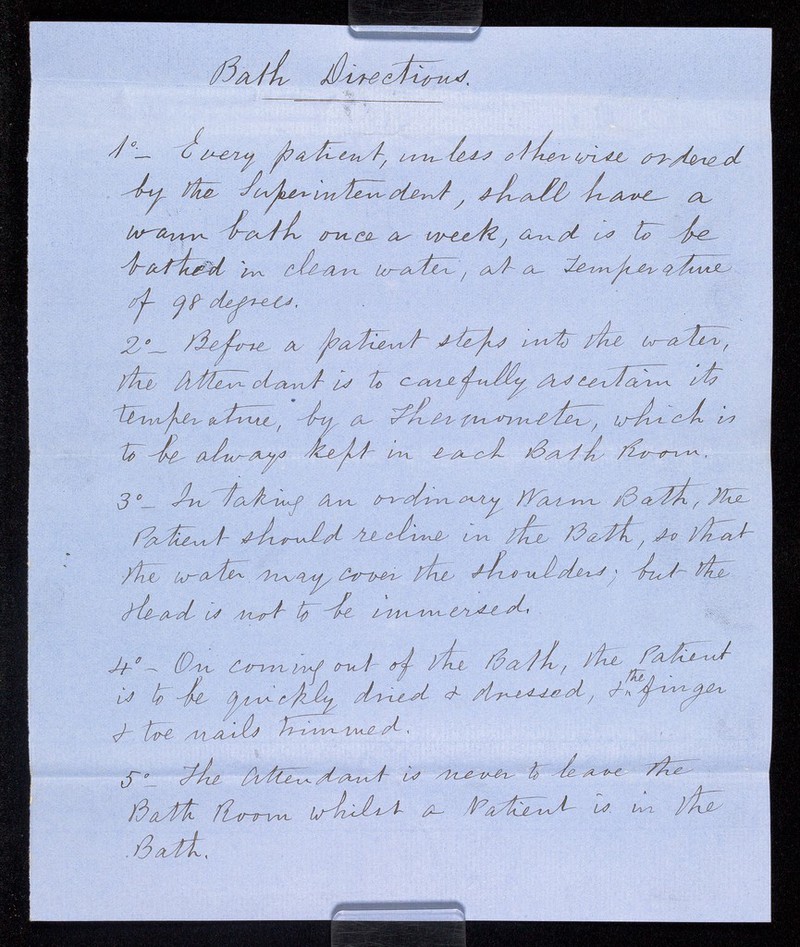 Bath Directions.
1°- Every patient, unless otherwise ordered
by the Superintendent, shall have a
warm bath once a week, and is to be
bathed in clean water, at a temperature
of 98 degrees.
2°- Before a patient steps into the water,
the Attendant is to carefully ascertain its
temperature, by a Thermometer, which is
to be always kept in each Bath Room.
3°- In taking an ordinary Warm Bath, the
Patient should recline in the Bath, so that
the water may cover the shoulders; but the
Head is not to be immersed.
4°- On coming out of the Bath, the Patient
is to be quickly dried & dressed, & the finger
& toe nails trimmed.
5°- The Attendant is never to leave the
Bath Room whilst a Patient is in the
Bath.